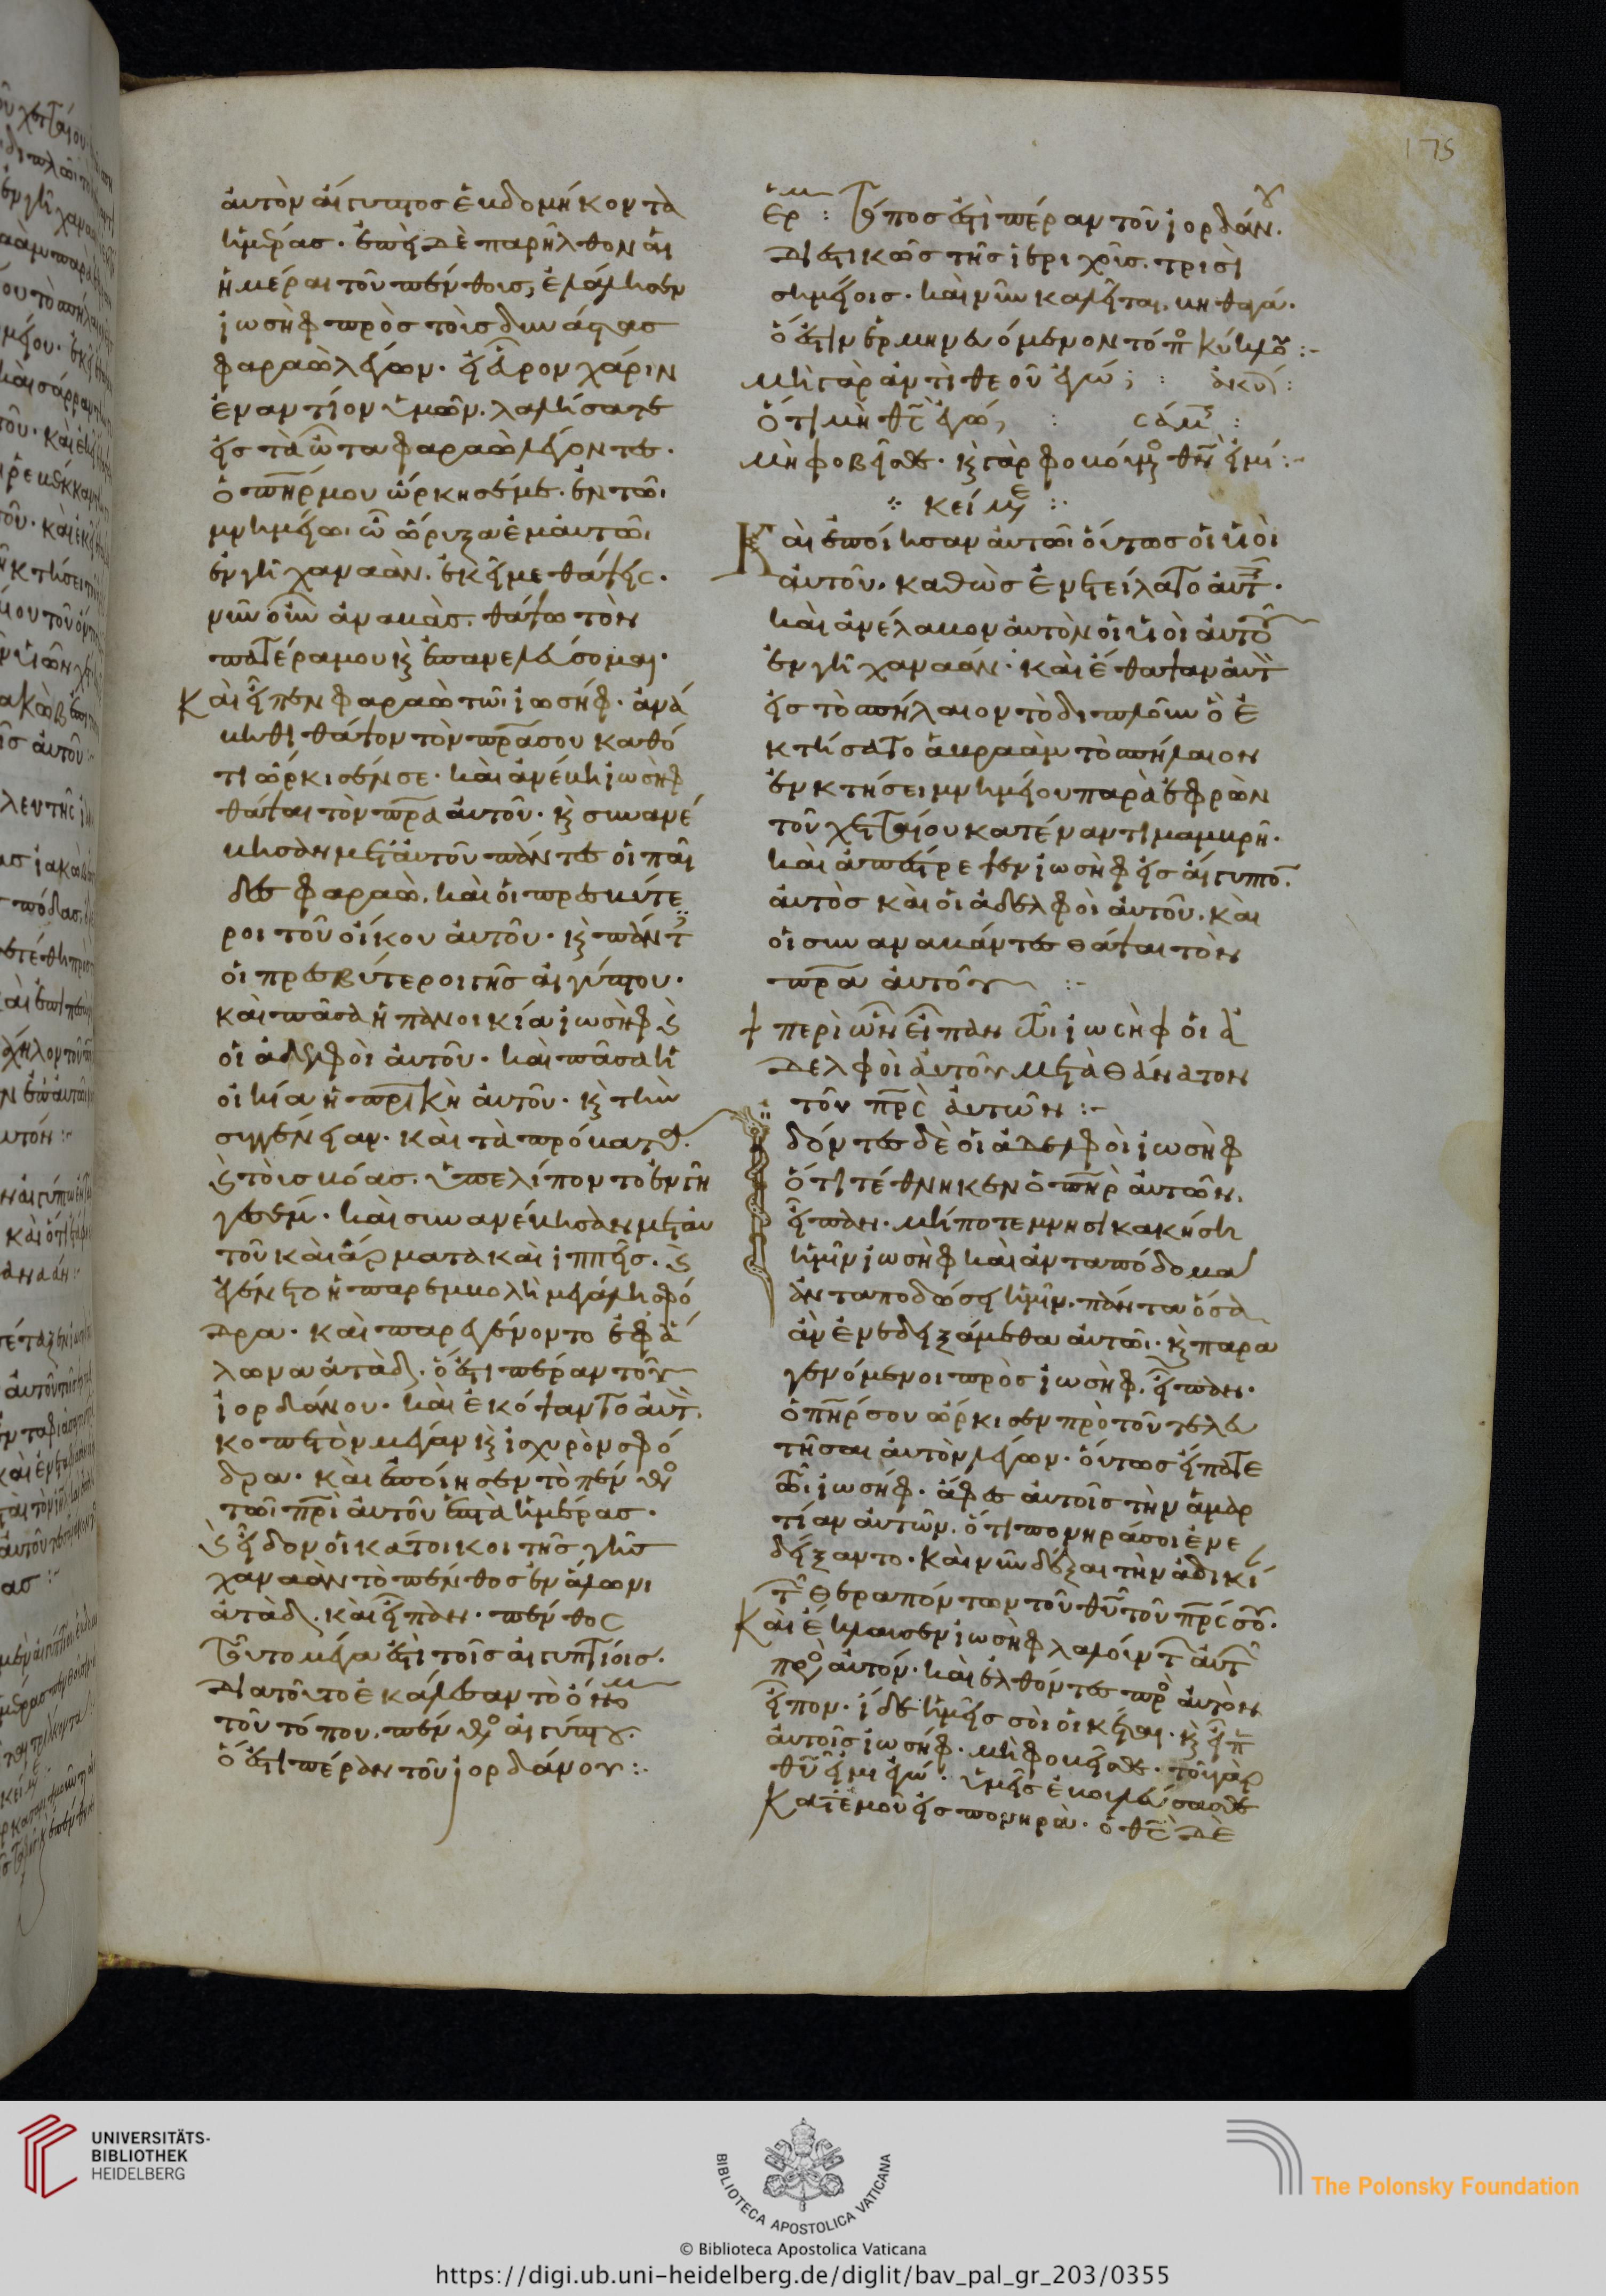 175
αὐτὸν αἴγυπτοσ ἑβδομήκοντα
ἡμέρασ. ἐπεὶ δὲ παρῆλθον αἱ
ἡμέραι τοῦ πένθουσ, ἐλάλησεν
ἰωσὴφ πρὸσ τοὺσ δυνάστασ
φαραὼ λέγων. εἰ εὗρον χάριν
ἐναντίον ὑμῶν. λαλήσατε
εἰσ τὰ ὦτα φαραὼ λέγοντεσ.
ὁ πηρ μου ὥρκησέ με. ἐν τῶι
μνημείωι ὧ ὤρυξα ἐμαυτῶι
ἐν γῆ χαναὰν. ἐκεῖ με θάψεισ.
νῦν οὖν ἀναβὰσ. θάψω τὸν
πατέρα μου κ ἐπανελεύσομαι.
Καὶ εἶπεν φαραὼ τῶι ἰωσήφ. ἀνά
βηθι θάψον τὸν πρα σου καθό
τι ὥρκισέν σε. καὶ ἀνέβη ἰωσὴφ
θάψαι τὸν πρα αὐτοῦ. κ συνανέ
βησαν μετ αὐτοῦ πάντεσ οἱ παῖ
δεσ φαραώ. καὶ οἱ πρεσβύτε
ροι τοῦ οἴκου αὐτοῦ. κ πάντ
οἱ πρεσβύτεροι τῆσ αἰγύπτου.
καὶ πᾶσα ἡ πανοικία ἰωσὴφ κ
οἱ ἀδελφοὶ αὐτοῦ. καὶ πᾶσα ἡ
οἰκία ἡ πρικὴ αὐτοῦ. κ τὴν
συγγένειαν. καὶ τὰ πρόβατα.
κ τοὺσ βόασ. ὑπελίποντο ἐν γῆ
γεσέμ. καὶ συνανέβησαν μετ αὐ
τοῦ καὶ ἅρματα καὶ ἱππεῖσ. κ
ἐγένετο ἡ παρεμβολὴ μεγάλη σφό
δρα. καὶ παρεγένοντο ἐφ ἅ
λωνα ἀτὰδ. ὅ ἐστι πέραν τοῦ
ἰορδάνου. καὶ ἐκόψαντο αὐτ
κοπετὸν μέγαν κ ἰσχυρὸν σφό
δρα. καὶ ἐποίησεν τὸ πένθο
τῶι πρι αὐτοῦ ἑπτὰ ἡμέρασ.
κ εἶδον οἱ κάτοικοι τῆσ γῆσ
χαναὰν τὸ πένθοσ ἐν ἅλωνι
ἀτὰδ. καὶ εἶπαν. πένθοσ
τοῦτο μέγα ἐστὶ τοῖσ αἰγυπτίοισ.
διατοῦτο ἐκάλεσαν τὸ ὄνο
τοῦ τόπου. πένθο αἰγύπτου.
ὅ ἐστι πέραν τοῦ ἰορδάνου :.
ἑρμ : Τόποσ ἐστὶ πέραν τοῦ ἰορδάνου.
διεστικῶσ τῆσ ἱεριχοῦσ. τρισὶ
σημείοισ. καὶ νῦν καλεῖται. βηθαγά.
ὅ ἐστιν ἑρμηνευόμενον τόπο κύκλου :-
μὴ γὰρ ἀντὶ θεοῦ ἐγώ; : ἀκυ :
ὅτι μὴ θς ἐγώ, : σάμ :
μὴ φοβεῖσθε. κ γὰρ φοβούμ θν εἰμί :-
κείμε :-
Καὶ ἐποίησαν αὐτῶι οὕτωσ οἱ υἱοὶ
αὐτοῦ. καθὼσ ἐνετείλατο αὐτ.
καὶ ἀνέλαβον αὐτὸν οἱ υἱοὶ αὐτοῦ
ἐν γῆ χαναάν. καὶ ἔθαψαν αὐτ
εἰσ τὸ σπήλαιον τὸ διπλοῦν ὃ ἐ
κτήσατο ἀβραὰμ τὸ σπήλαιον
ἐν κτήσει μνημείου παρὰ ἐφρὼν
τοῦ χετταίου κατέναντι μαμβρῆ.
καὶ ἀπέστρεψεν ἰωσὴφ εἰσ αἴγυπτο.
αὐτὸσ καὶ οἱ ἀδελφοὶ αὐτοῦ. καὶ
οἱ συναναβάντεσ θάψαι τὸν
πρα αὐτοῦ :-
περὶ ὧν εἶπαν τῶι ἰωσὴφ οἱ ἀ
δελφοὶ αὐτοῦ μετὰ θάνατον
τοῦ πρσ αὐτῶν :-
Ἰδόντεσ δὲ οἱ ἀδελφοὶ ἰωσὴφ
ὅτι τέθνηκεν ὁ πηρ αὐτῶν.
εἶπαν. μήποτε μνησικακήση
ἡμῖν ἰωσὴφ καὶ ἀνταπόδομα
ἀνταποδώσει ἡμῖν. πάντα ὅσα
ἂν ἐνεδειξάμεθα αὐτῶι. κ παρα
γενόμενοι πρὸσ ἰωσήφ. εἶπαν.
ὁ πηρ σου ὥρκισεν πρὸ τοῦ τελευ
τῆσαι αὐτὸν λέγων. οὕτωσ εἴπατε
τῶι ἰωσήφ. ἄφεσ αὐτοῖσ τὴν ἁμαρ
τίαν αὐτῶν. ὅτι πονηρά σοι ἐνε
δείξαντο. καὶ νῦν δέξαι τὴν ἀδικί
τ θεραπόντων τοῦ θυ τοῦ πρσ σου.
Καὶ ἔκλαυσεν ἰωσὴφ λαλούντ αὐτ
πρὸ αὐτόν. καὶ ἐλθόντεσ πρὸ αὐτὸν
εἶπον. ἴδε ἡμεῖσ σοὶ οἰκέται. κ εἶπ
αὐτοῖσ ἰωσήφ. μὴ φοβεῖσθε. τοῦ γὰρ
θυ εἰμι ἐγώ. ὑμεῖσ ἐβουλεύσασθε
Κατ ἐμοῦ εἰσ πονηρά. ὁ θς δὲ
UNIVERSITÄTS-
BIBLIOTHEK
HEIDELBERG
BIBLIOTECA APOSTOLICA VATICANA
The Polonsky Foundation
© Biblioteca Apostolica Vaticana
https://digi.ub.uni-heidelberg.de/diglit/bav_pal_gr_203/0355